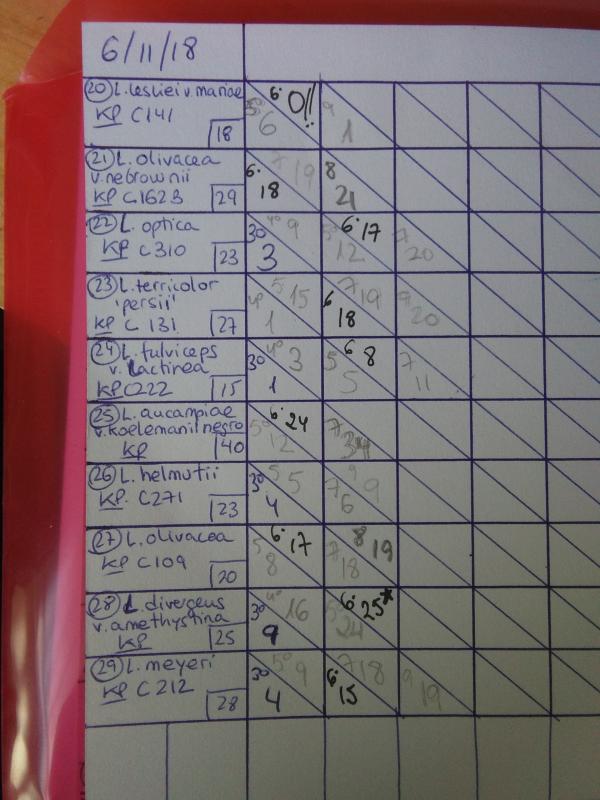 6/11/18
20 L. lesliei v. mariae 6° 0!!
KP C141 18 5° 6 9 1
21 L. olivacea 7 19 8
v. nebrownii 6° 18 21
KP C162B 29
22 L. optica 3° 4° 9 5° 6° 17 7
KP C310 23 3 12 20
23 L. terricolor 5 15 7 19 9
'persii' 4° 1 6 18 20
KP C 131 27
24 L. fulviceps 3° 4° 3 5 6 8 7
v. lactinea 1 5 11
KP C222 15
25 L. aucampiae 6° 24
v. koelemanii negro 5° 12 7 34
KP 40
26 L. helmutii 3° 5 5 9 9
KP. C271 23 4 7 6
27 L. olivacea 6° 17 8 19
KP C109 20 5 8 7 18
28 L. divergens 3° 4° 16 6° 25*
v. amethystina 9 5° 24
KP 25
29 L. meyeri 3° 5° 9 7 18 9
KP C212 28 4 6° 15 19